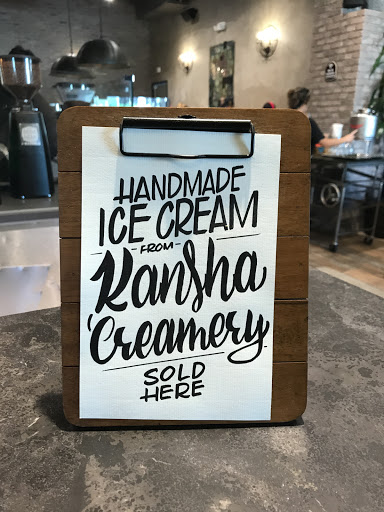 HANDMADE
ICE CREAM
- FROM -
Kansha
Creamery
SOLD
HERE